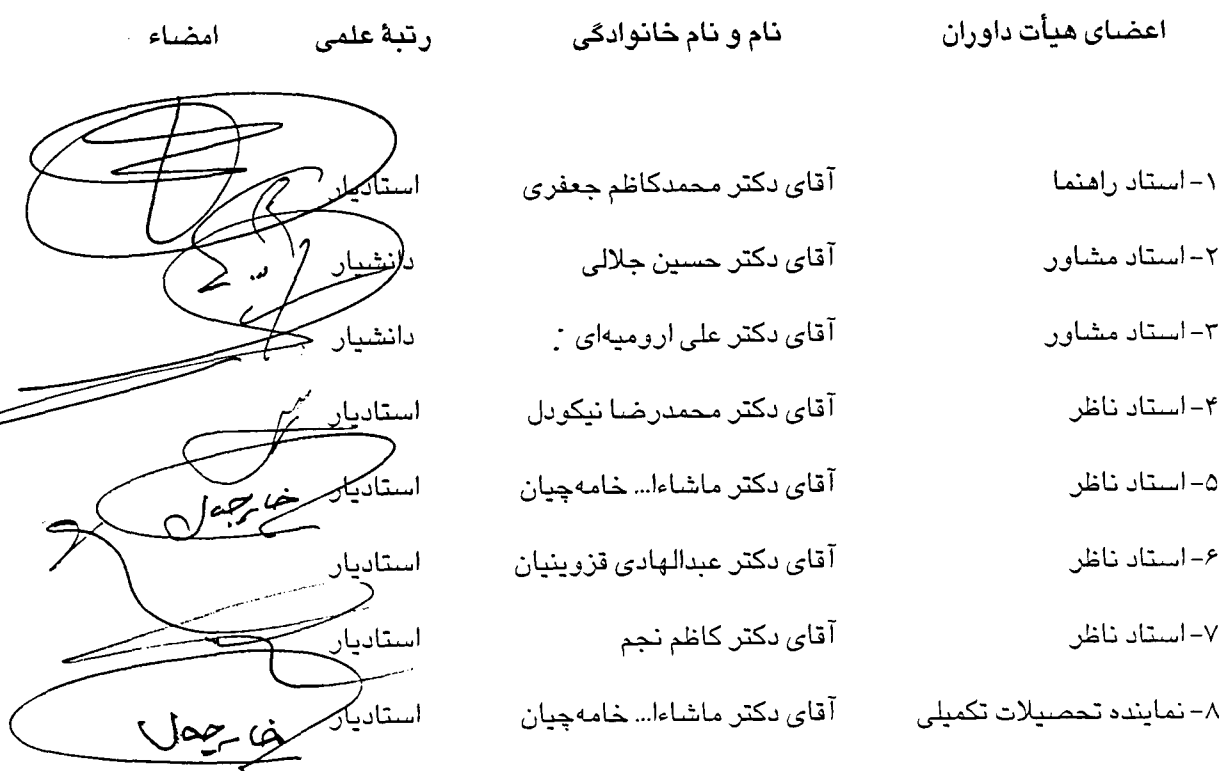 اعضای هیأت داوران نام و نام خانوادگی رتبهٔ علمی امضاء
۱- استاد راهنما آقای دکتر محمدکاظم جعفری استادیار
۲- استاد مشاور آقای دکتر حسین جلالی دانشیار
۳- استاد مشاور آقای دکتر علی ارومیه‌ای دانشیار
۴- استاد ناظر آقای دکتر محمدرضا نیکودل استادیار
۵- استاد ناظر آقای دکتر ماشاءا... خامه‌چیان استادیار
۶- استاد ناظر آقای دکتر عبدالهادی قزوینیان استادیار
۷- استاد ناظر آقای دکتر کاظم نجم استادیار
۸- نماینده تحصیلات تکمیلی آقای دکتر ماشاءا... خامه‌چیان استادیار